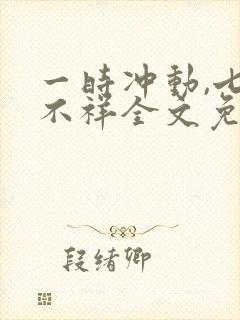 一时冲动,七
不祥全文免
段绪卿